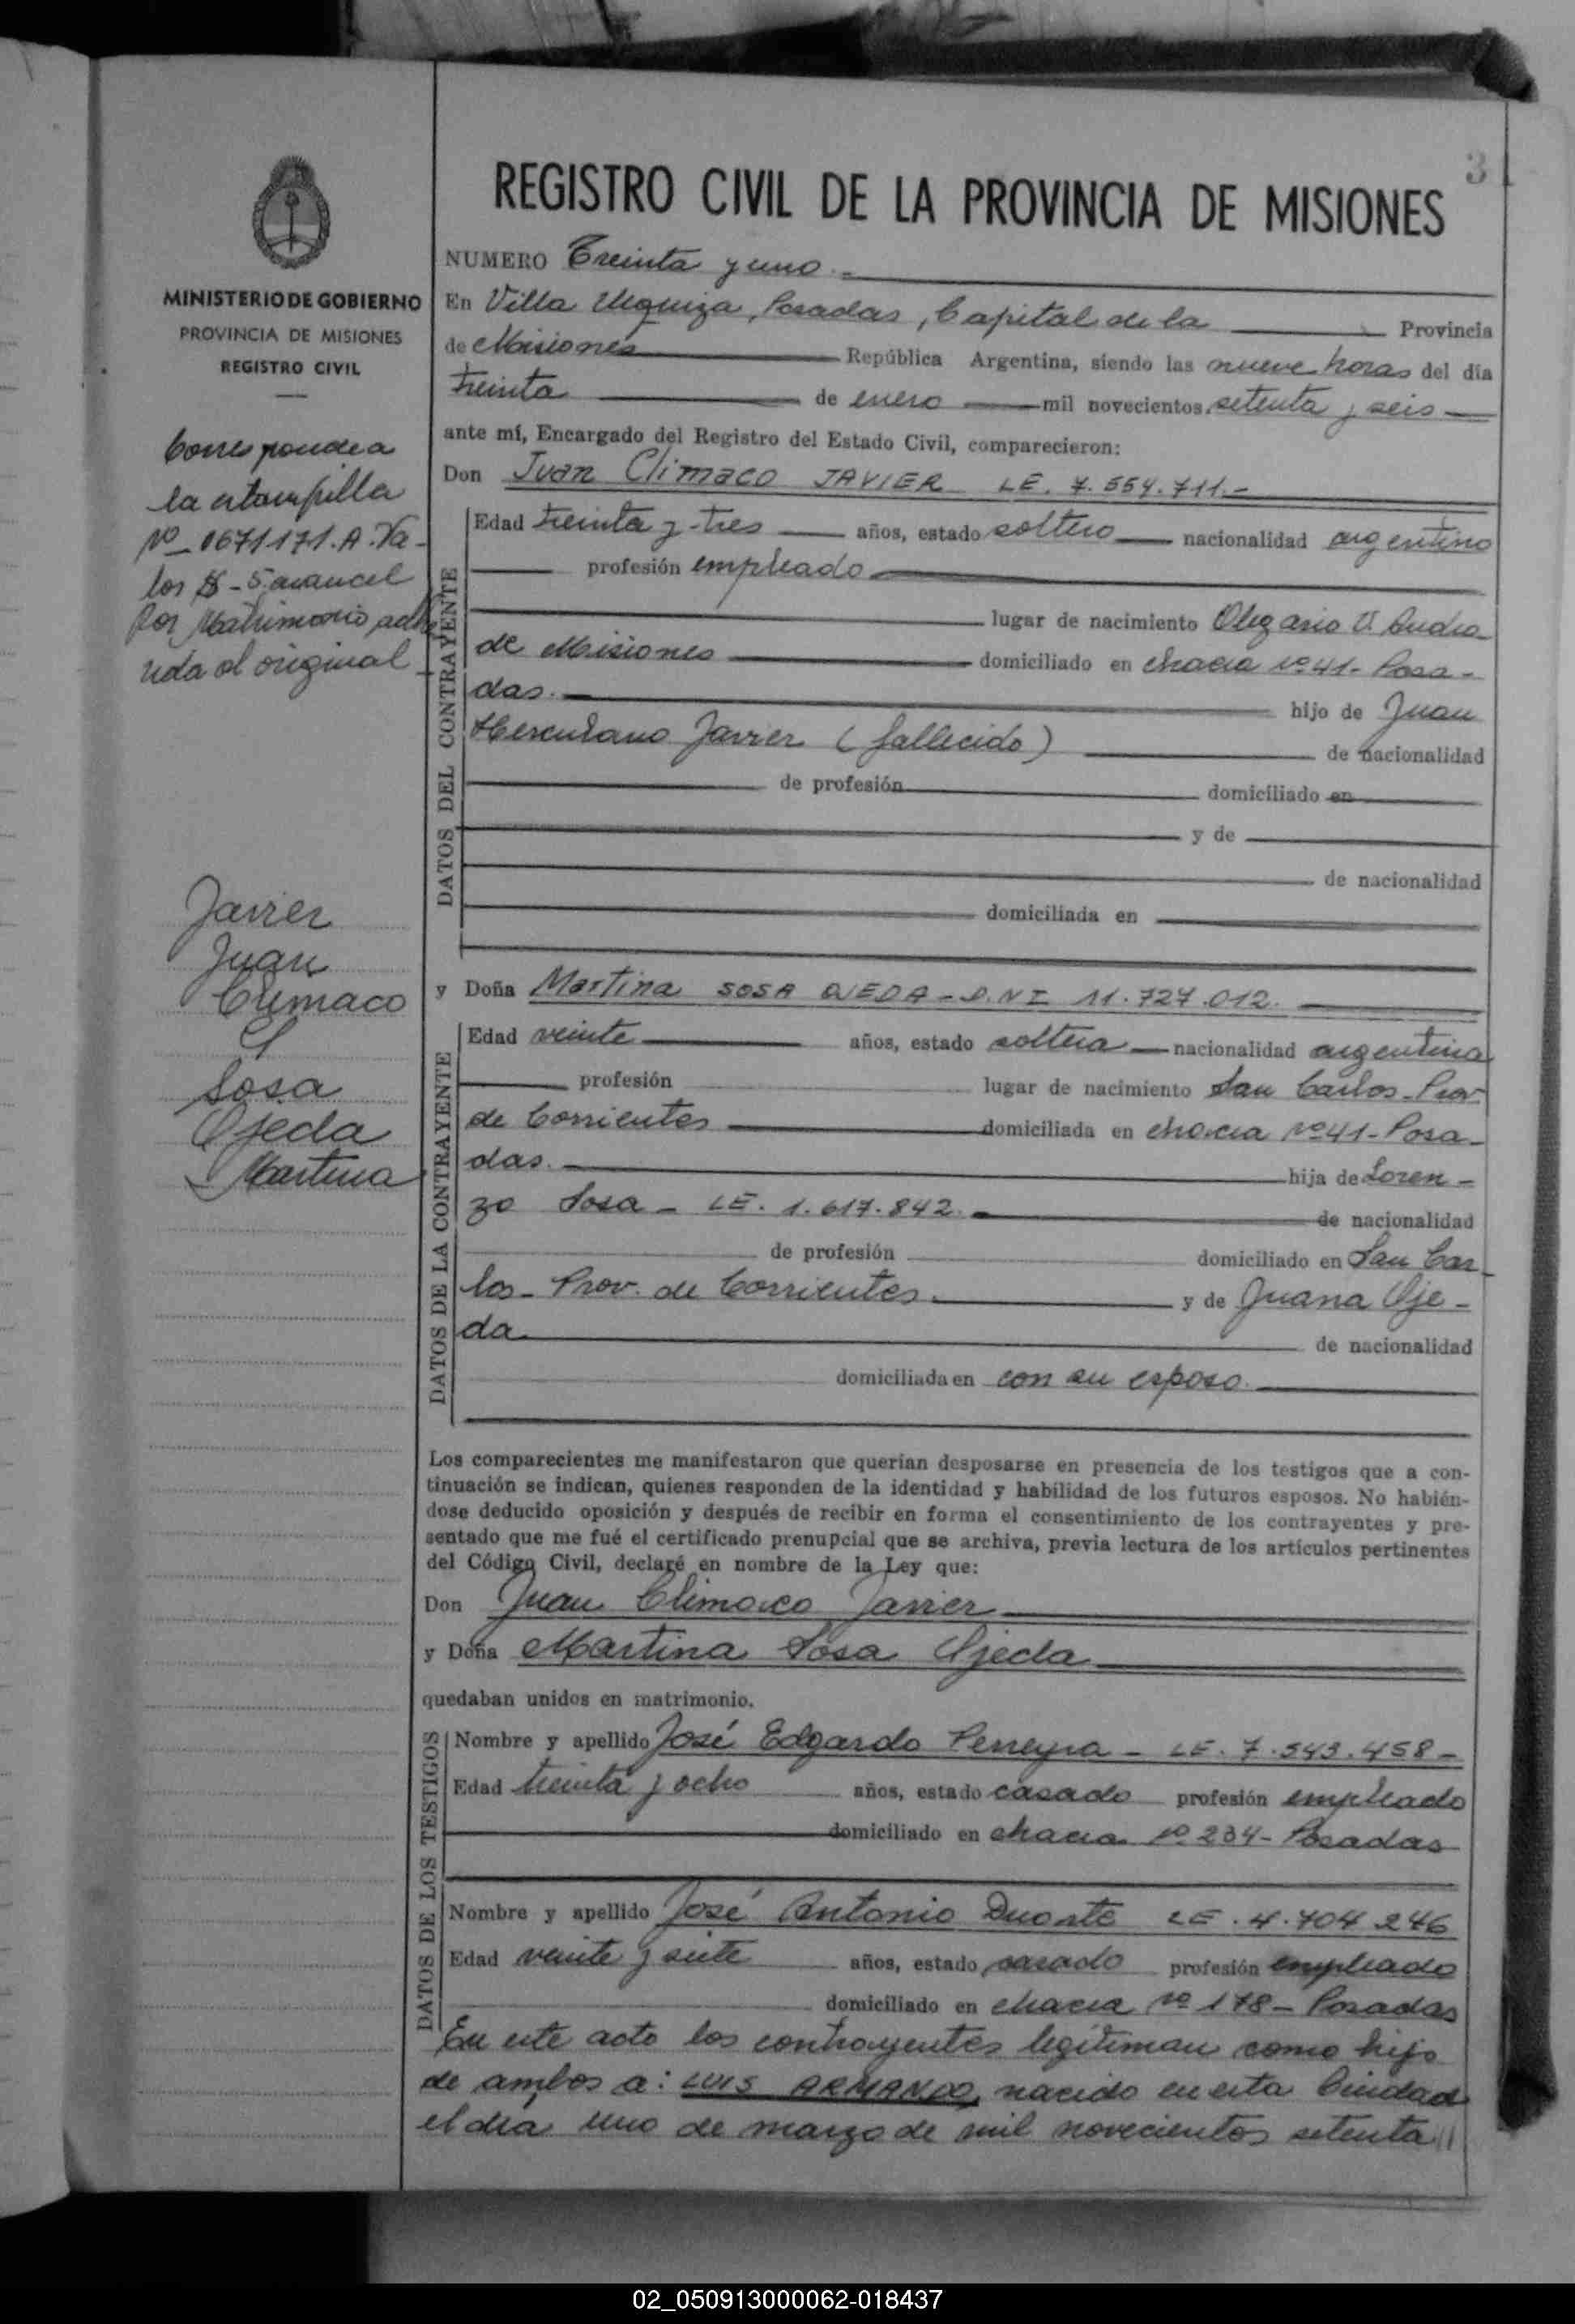 31
REGISTRO CIVIL DE LA PROVINCIA DE MISIONES
MINISTERIO DE GOBIERNO
PROVINCIA DE MISIONES
REGISTRO CIVIL
Corresponde a
la estampilla
Nº _ 0671171. A. Va-
lor $ - 5. arancel
Por Matrimonio adhe
rida al original
Javier
Juan
Climaco
Sosa
Ojeda
Martina
NUMERO Treinta y uno.
En Villa Urquiza, Posadas, Capital de la Provincia
de Misiones República Argentina, siendo las nueve horas del día
treinta de enero mil novecientos setenta y seis
ante mí, Encargado del Registro del Estado Civil, comparecieron:
Don Juan Climaco JAVIER LE. 7.554.711.-
DATOS DEL CONTRAYENTE
Edad treinta y tres años, estado soltero nacionalidad argentino
profesión empleado
lugar de nacimiento Olegario V. Andra
de Misiones domiciliado en chacra Nº 41- Posa-
das. hijo de Juan
Herculano Javier (fallecido) de nacionalidad
de profesión domiciliado en
y de
de nacionalidad
domiciliada en
y Doña Martina SOSA OJEDA - D.N I 11.727.012.
DATOS DE LA CONTRAYENTE
Edad veinte años, estado soltera nacionalidad argentina
profesión lugar de nacimiento San Carlos - Prov
de Corrientes domiciliada en chacra Nº 41- Posa-
das. hija de Loren-
zo Sosa - LE. 1.617.842. de nacionalidad
de profesión domiciliado en San Car-
los - Prov. de Corrientes. y de Juana Oje-
da de nacionalidad
domiciliada en con su esposo.
Los comparecientes me manifestaron que querían desposarse en presencia de los testigos que a con-
tinuación se indican, quienes responden de la identidad y habilidad de los futuros esposos. No habién-
dose deducido oposición y después de recibir en forma el consentimiento de los contrayentes y pre-
sentado que me fué el certificado prenupcial que se archiva, previa lectura de los artículos pertinentes
del Código Civil, declaré en nombre de la Ley que:
Don Juan Climaco Javier
y Doña Martina Sosa Ojeda
quedaban unidos en matrimonio.
DATOS DE LOS TESTIGOS
Nombre y apellido José Edgardo Perreyra - LE. 7.543.458-
Edad treinta y ocho años, estado casado profesión empleado
domiciliado en chacra Nº 234- Posadas
Nombre y apellido José Antonio Duarte LE. 4.704.246
Edad veinte y siete años, estado casado profesión empleado
domiciliado en chacra Nº 178- Posadas
En este acto los contrayentes legitiman como hijo
de ambos a: LUIS ARMANDO, nacido en esta Ciudad
el día uno de marzo de mil novecientos setenta //
02_050913000062-018437